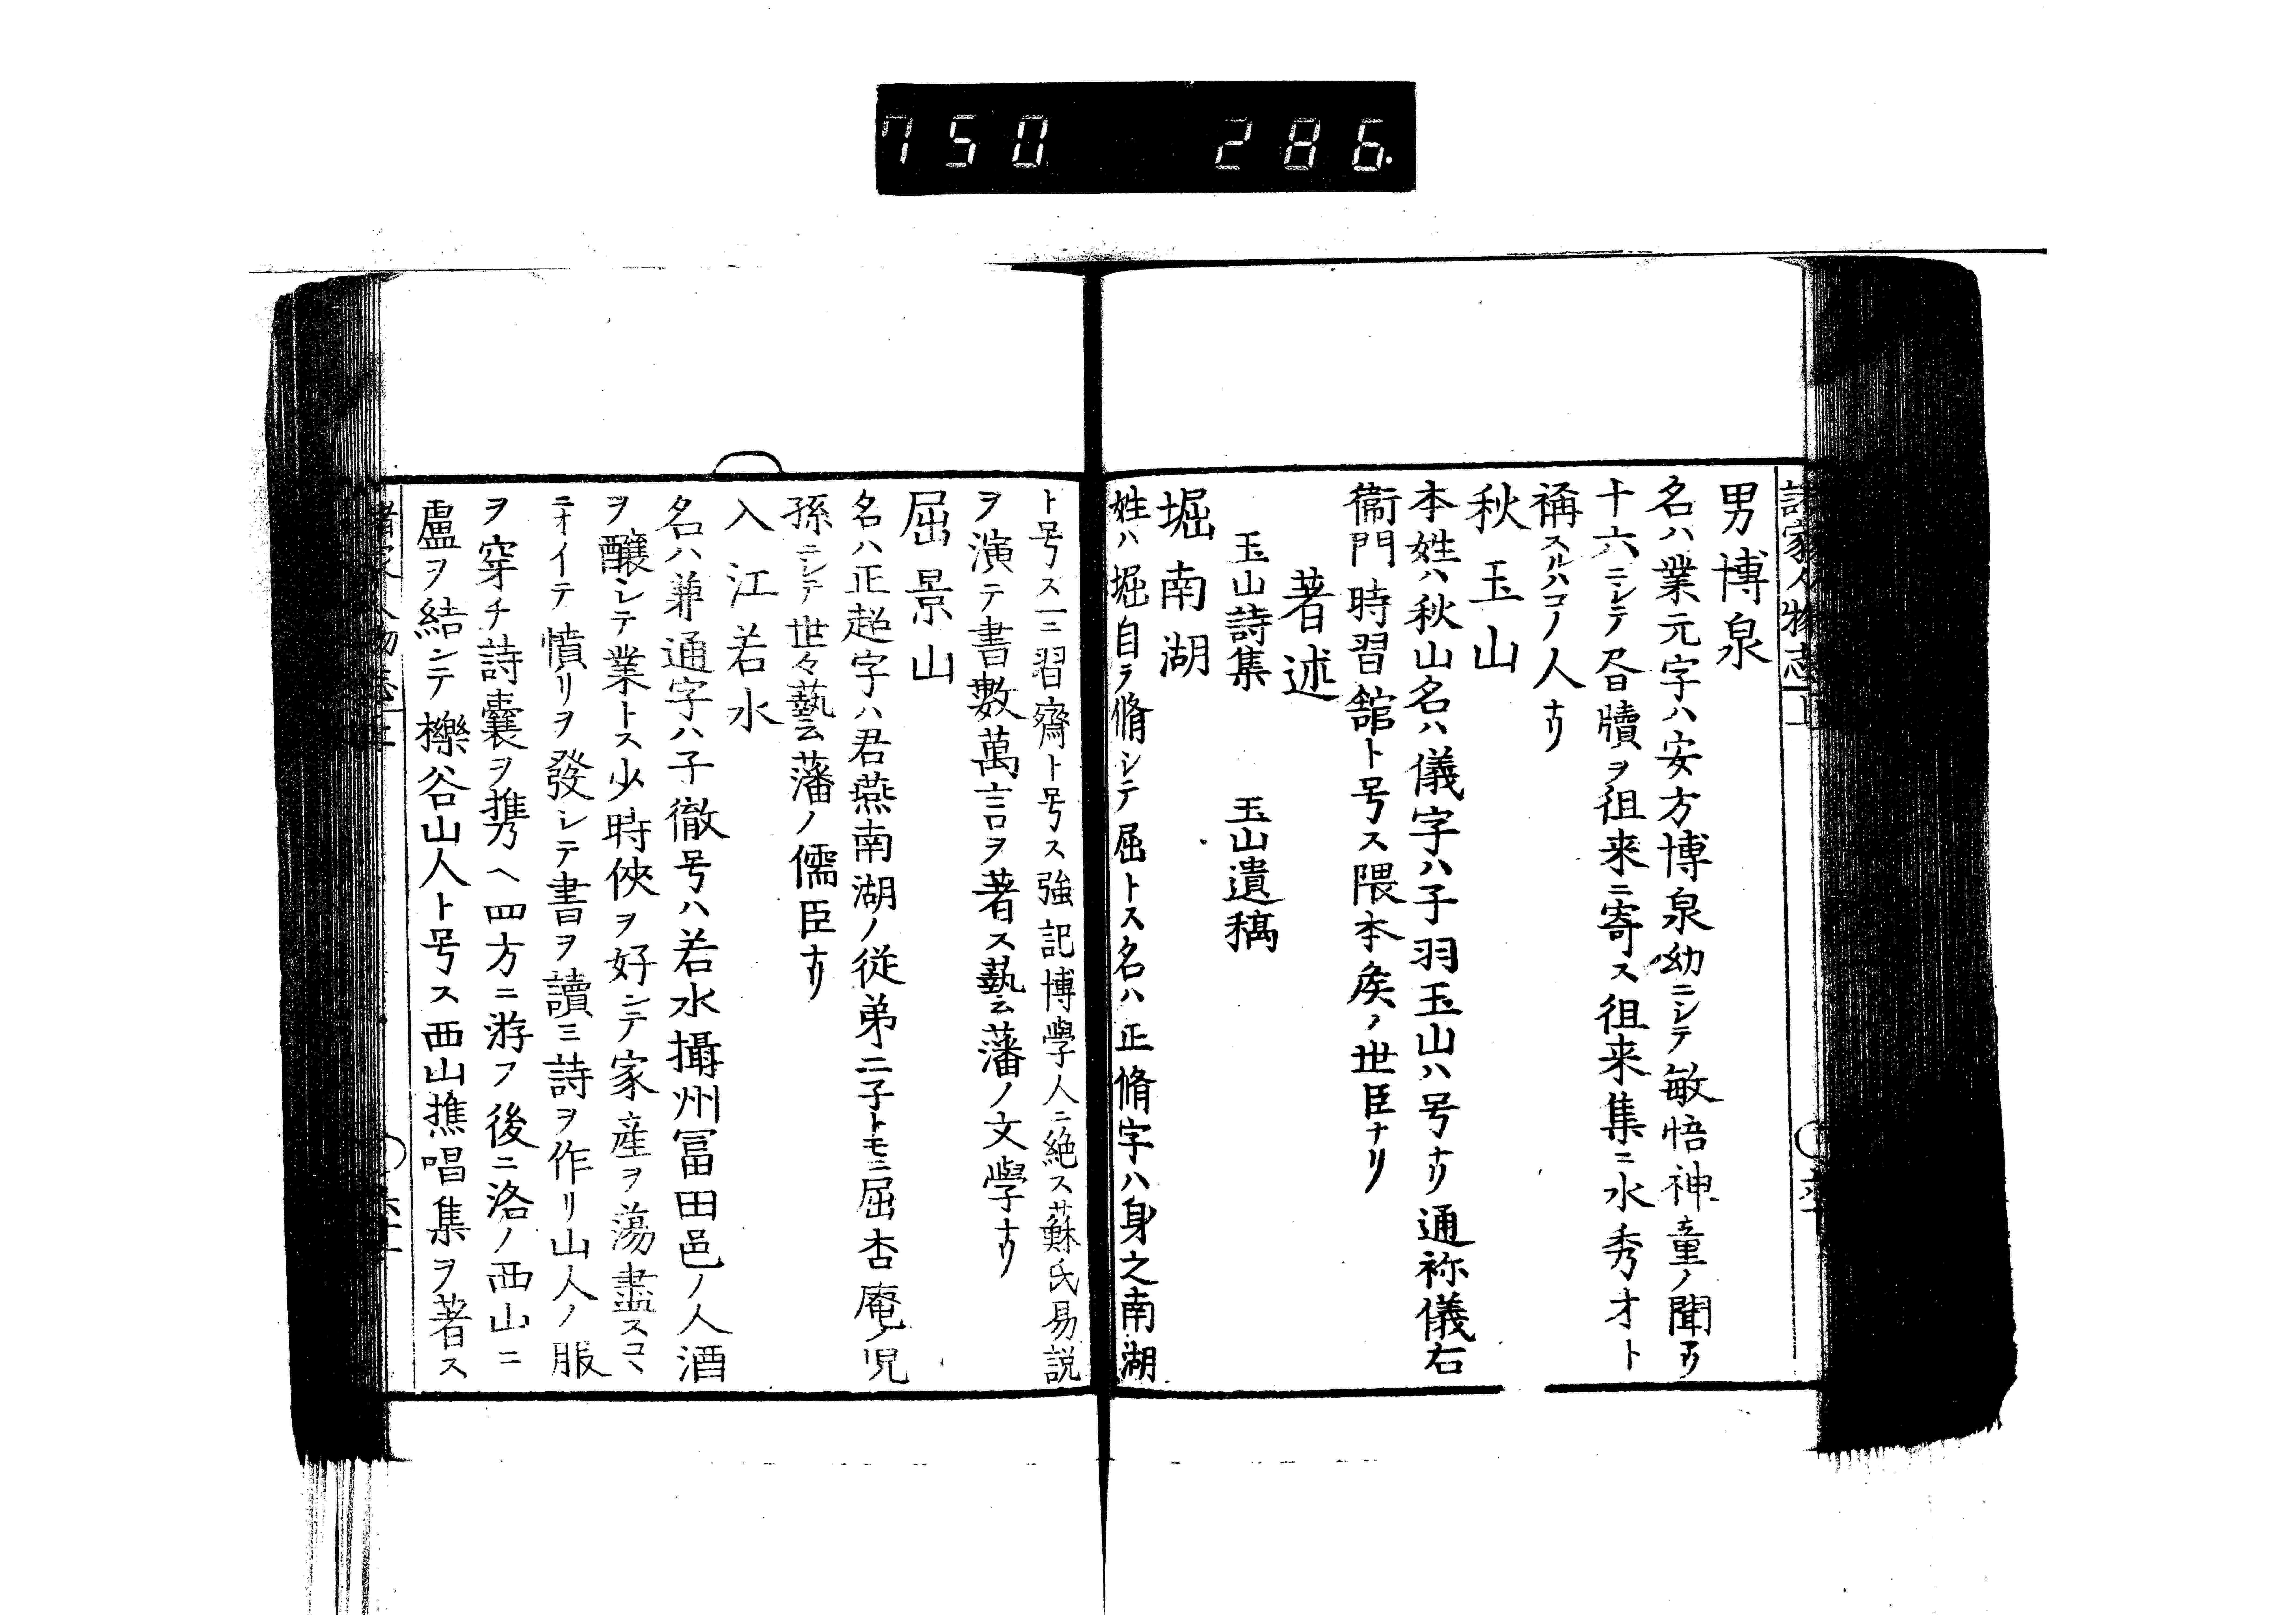 750 286.
諸家人物志 上
男博泉
名ハ業元字ハ安方博泉幼ニシテ敏悟神童ノ聞アリ
十六ニシテ尺牘ヲ徂来ニ寄ス徂来集ニ水秀才ト
稱スルハコノ人ナリ
秋玉山
本姓ハ秋山名ハ儀字ハ子羽玉山ハ号ナリ通祢儀右
衞門時習舘ト号ス隈本矦ノ世臣ナリ
著述
玉山詩集 玉山遺稿
堀南湖
姓ハ堀自ラ脩シテ屈トス名ハ正脩字ハ身之南湖
ト号ス一ニ習齋ト号ス強記博學人ニ絶ス蘇氏易説
ヲ演テ書數萬言ヲ著ス藝藩ノ文學ナリ
屈景山
名ハ正超字ハ君燕南湖ノ從弟二子トモニ屈杏庵ノ児
孫ニシテ世々藝藩ノ儒臣ナリ
入江若水
名ハ兼通字ハ子徹号ハ若水攝州冨田邑ノ人酒
ヲ釀シテ業トス少時俠ヲ好ンテ家産ヲ蕩盡スコヽ
ニオイテ憤リヲ發シテ書ヲ讀ミ詩ヲ作リ山人ノ服
ヲ穿チ詩囊ヲ携ヘ四方ニ游フ後ニ洛ノ西山ニ
盧ヲ結ンテ櫟谷山人ト号ス西山樵唱集ヲ著ス